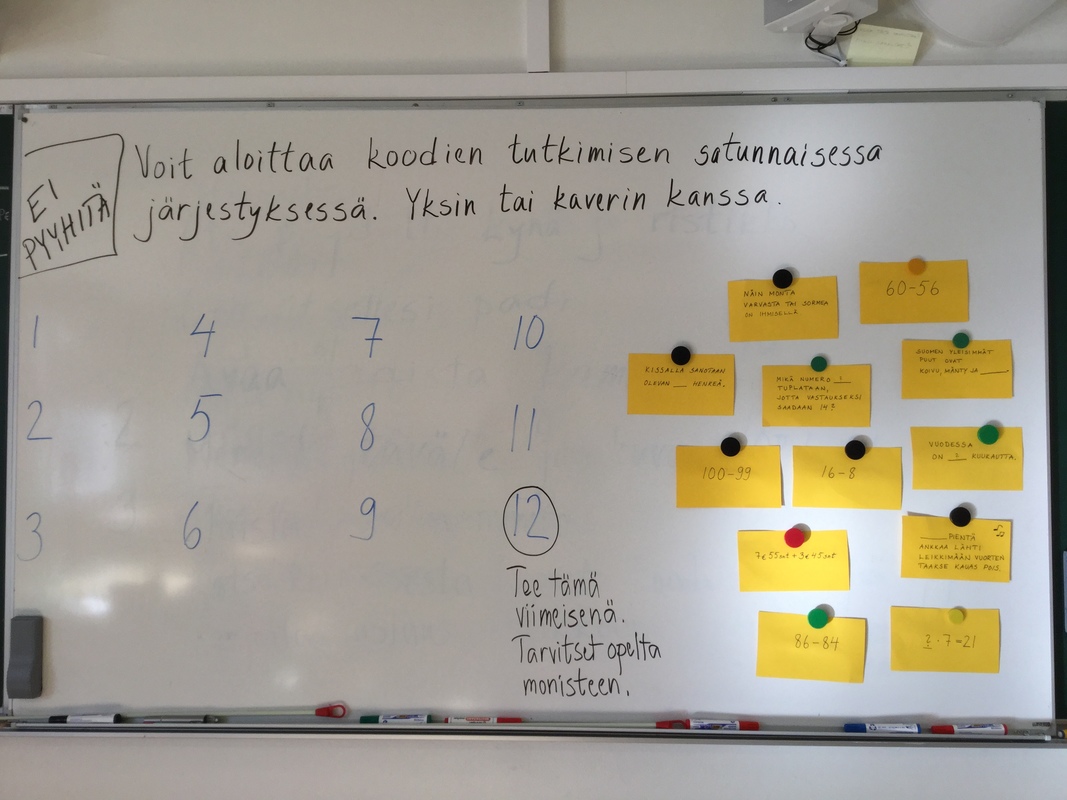 EI
PYYHITÄ
Voit aloittaa koodien tutkimisen satunnaisessa
järjestyksessä. Yksin tai kaverin kanssa.
1 4 7 10
2 5 8 11
3 6 9 12
Tee tämä
viimeisenä.
Tarvitset opelta
monisteen.
NÄIN MONTA
VARVASTA TAI SORMEA
ON IHMISELLÄ
60-56
KISSALLA SANOTAAN
OLEVAN ___ HENKEÄ.
MIKÄ NUMERO ?
TUPLATAAN,
JOTTA VASTAUKSEKSI
SAADAAN 14?
SUOMEN YLEISIMMÄT
PUUT OVAT
KOIVU, MÄNTY JA ___
100-99
16-8
VUODESSA
ON ? KUUKAUTTA.
7€ 55snt + 3€ 45snt
___ PIENTÄ
ANKKAA LÄHTI
LEIKKIMÄÄN VUORTEN
TAAKSE KAUAS POIS.
86-84
? · 7 = 21